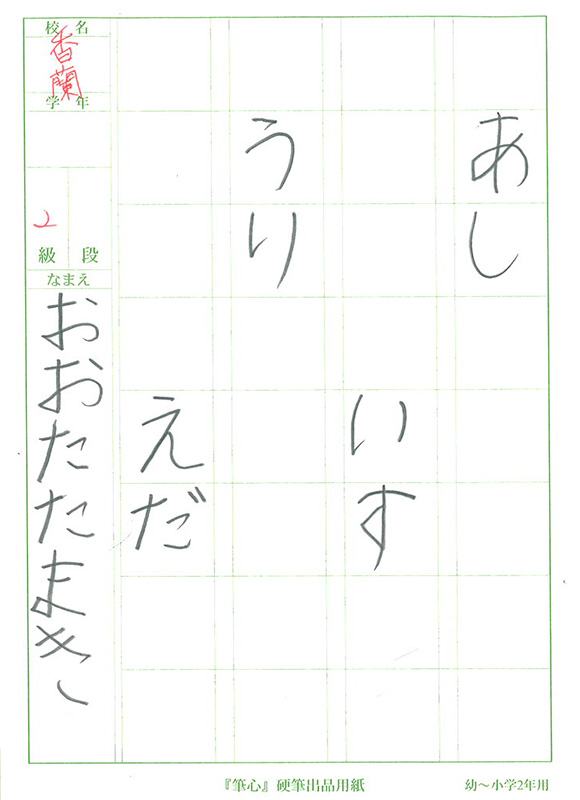 あし
いす
うり
えだ
校名
香蘭
学年
2
級 段
なまえ
おおたたまき
『筆心』硬筆出品用紙
幼～小学2年用